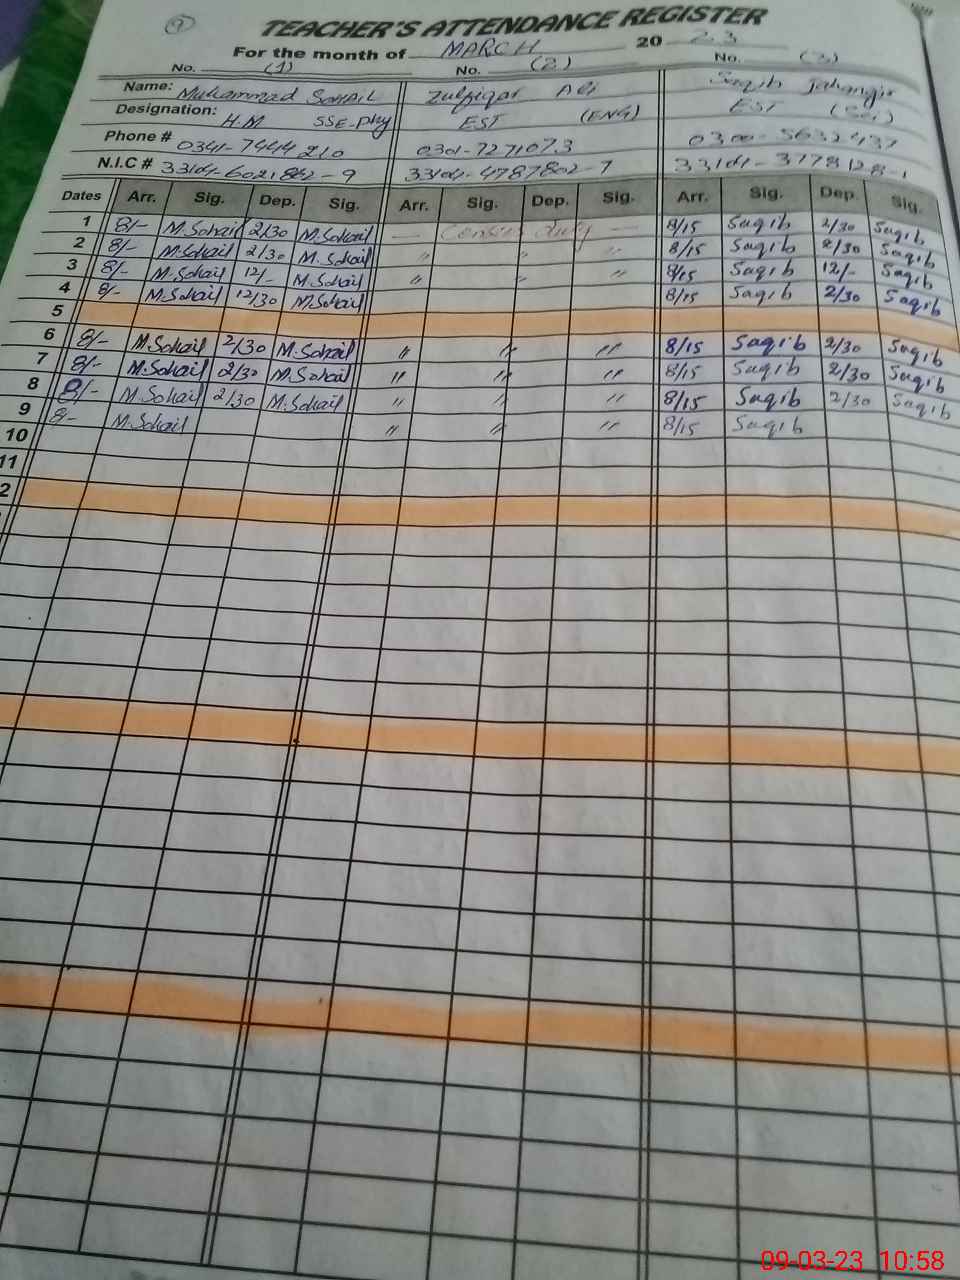 9
TEACHER'S ATTENDANCE REGISTER
For the month of MARCH 2023
No. (1) No. (2) No. (3)
Name: Muhammad Sohail Zulfiqar Ali Saqib Jahangir
Designation: H.M SSE-Phy EST (ENG) EST (Sci)
Phone # 0341-7444210 0301-7271073 0300-5632437
N.I.C #
Dates Arr. Sig. Dep. Sig. Arr. Sig. Dep. Sig. Arr. Sig. Dep. Sig.
1 8/- M.Sohail 2/30 M.Sohail — Census duty — 8/15 Saqib 2/30 Saqib
2 8/- M.Sohail 2/30 M.Sohail " " " 8/15 Saqib 2/30 Saqib
3 8/- M.Sohail 12/- M.Sohail " " " 8/15 Saqib 12/- Saqib
4 8/- M.Sohail 12/30 M.Sohail 8/15 Saqib 2/30 Saqib
5
6 8/- M.Sohail 2/30 M.Sohail " " " 8/15 Saqib 2/30 Saqib
7 8/- M.Sohail 2/30 M.Sohail " " " 8/15 Saqib 2/30 Saqib
8 8/- M.Sohail 2/30 M.Sohail " " " 8/15 Saqib 2/30 Saqib
9 8/- M.Sohail " " " 8/15 Saqib
10
11
2
09-03-23 10:58